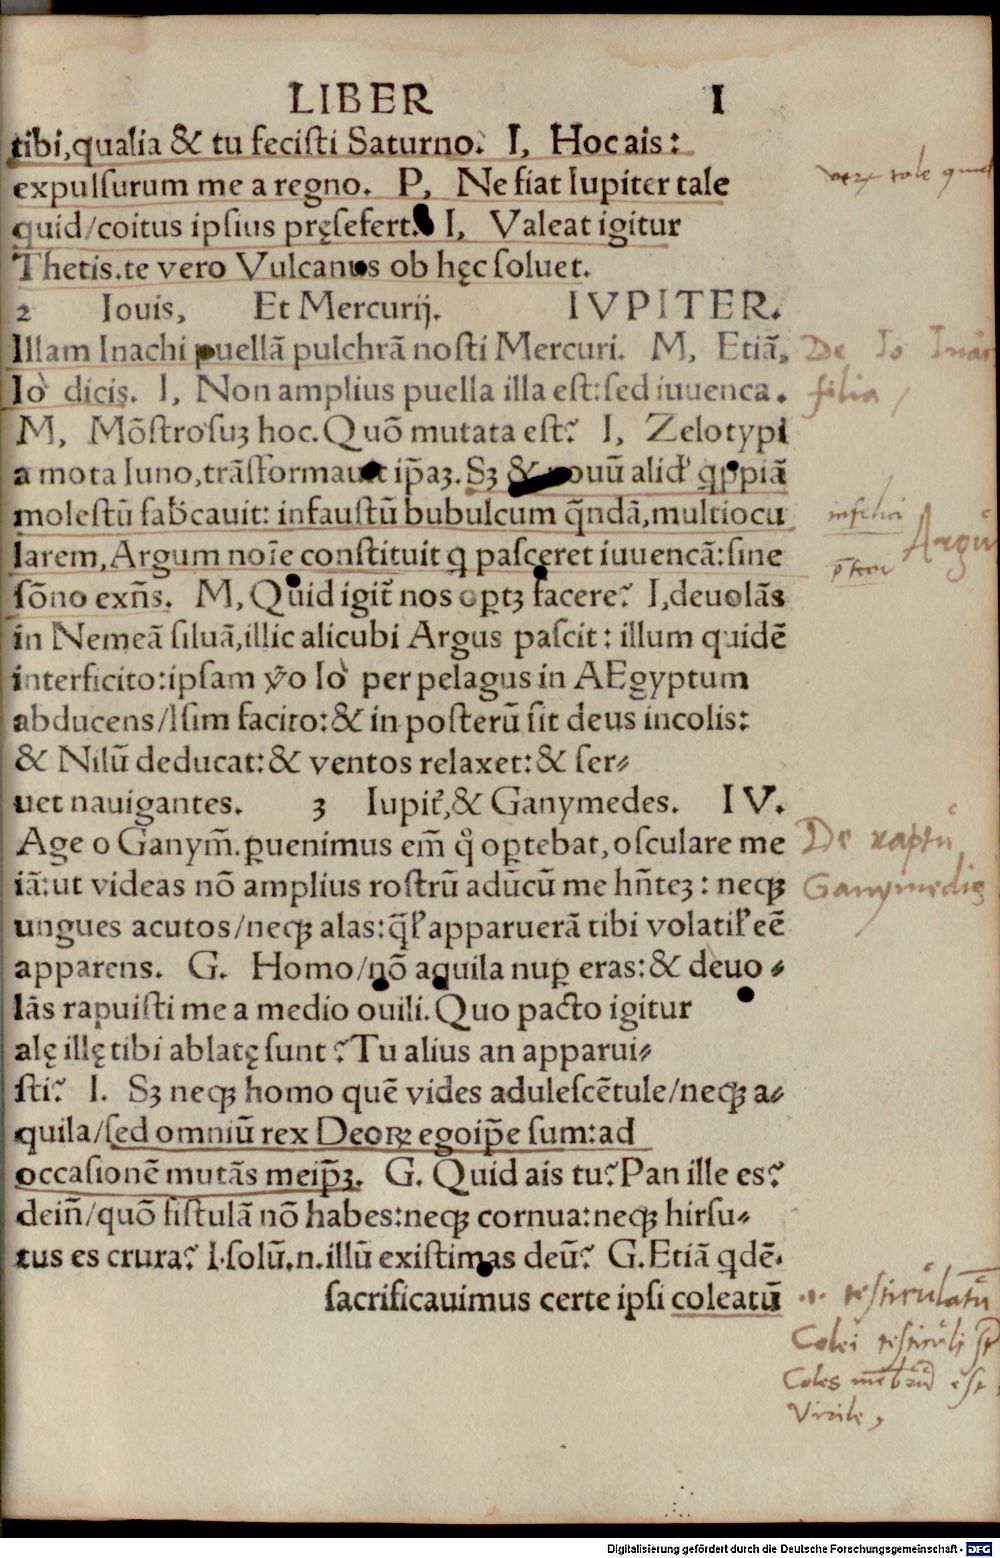 LIBER I
tibi,qualia & tu fecisti Saturno. I, Hoc ais:
expulsurum me a regno. P, Ne fiat Iupiter tale
quid/coitus ipsius pręsefert. I, Valeat igitur
Thetis.te vero Vulcanus ob hęc soluet.
2 Iouis, Et Mercurij. IVPITER.
Illam Inachi puellā pulchrā nosti Mercuri. M, Etiā,
Io dicis. I, Non amplius puella illa est:sed iuuenca.
M, Mōstrosuꝫ hoc.Quō mutata est? I, Zelotypi
a mota Iuno,trāsformauit ip̄aꝫ.Sꝫ & nouū alid' ꝗppiā
molestū fab̓cauit: infaustū bubulcum q̄ndā,multiocu
larem,Argum noīe constituit ꝗ pasceret iuuencā:sine
sōno exn̄s. M,Quid igit̓ nos oꝑtꝫ facere? I,deuolās
in Nemeā siluā,illic alicubi Argus pascit: illum quidē
interficito:ipsam v̓o Io per pelagus in AEgyptum
abducens/Isim facito:& in posterū sit deus incolis:
& Nilū deducat:& ventos relaxet:& ser⸗
uet nauigantes. 3 Iupit̓,& Ganymedes. IV.
Age o Ganym̄.ꝑuenimus em̄ q̊ oꝑtebat,osculare me
iā:ut videas nō amplius rostrū adūcū me hn̄teꝫ: neqꝫ
ungues acutos/neqꝫ alas:q̄l̓ apparuerā tibi volatil̓ eē
apparens. G. Homo/nō aquila nuꝑ eras:& deuo⸗
lās rapuisti me a medio ouili.Quo pacto igitur
alę illę tibi ablatę sunt?Tu alius an apparui⸗
sti? I. Sꝫ neqꝫ homo quē vides adulescētule/neqꝫ a⸗
quila/sed omniū rex Deoꝝ egoip̄e sum:ad
occasionē mutās meip̄ꝫ. G. Quid ais tu?Pan ille es?
dein̄/quō fistulā nō habes:neqꝫ cornua:neqꝫ hirsu⸗
tus es crura? I.solū.n.illū existimas deū? G.Etiā ꝗdē.
sacrificauimus certe ipsi coleatū
tale
De Io Inac
filia
infelici
Argū
De raptu
Ganymedis
.i. testiculatū
Colei testiculi st̄
Coles mēbrū est
Virile,
Digitalisierung gefördert durch die Deutsche Forschungsgemeinschaft - DFG